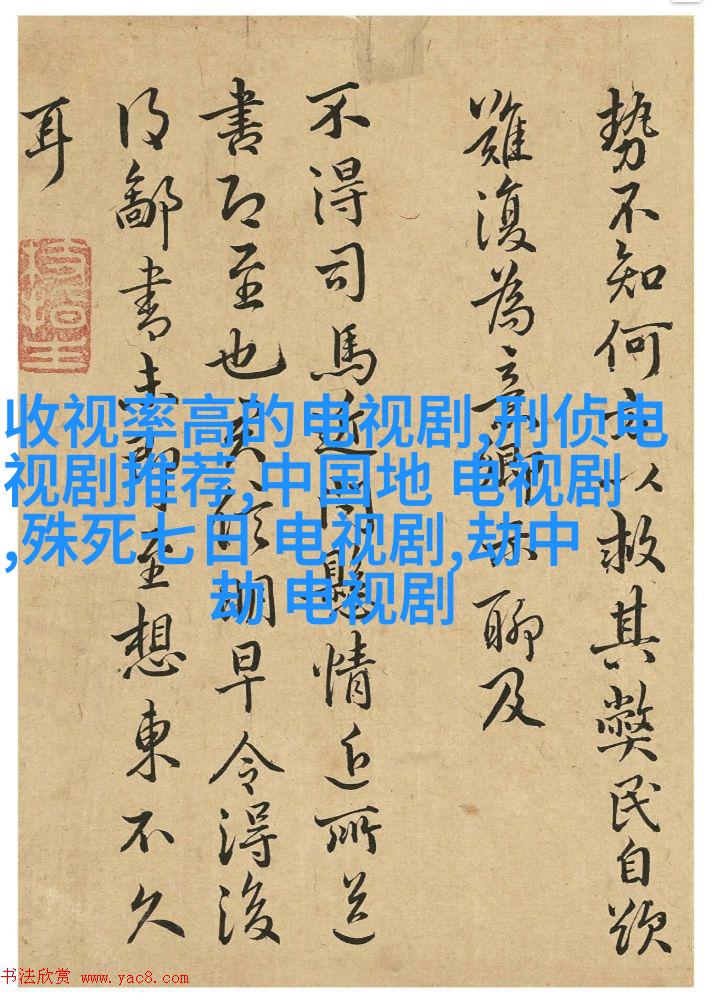 勢不知何方以救其弊民自
復為卿聊及
不得司馬近問懸情近所送
書即至也明早令得後
得鄙書至想東不久
耳
收视率高的电视剧,刑侦电
视剧推荐,中国地 电视剧
,殊死七日 电视剧,劫中
劫 电视剧
书法欣赏 www.yac8.com